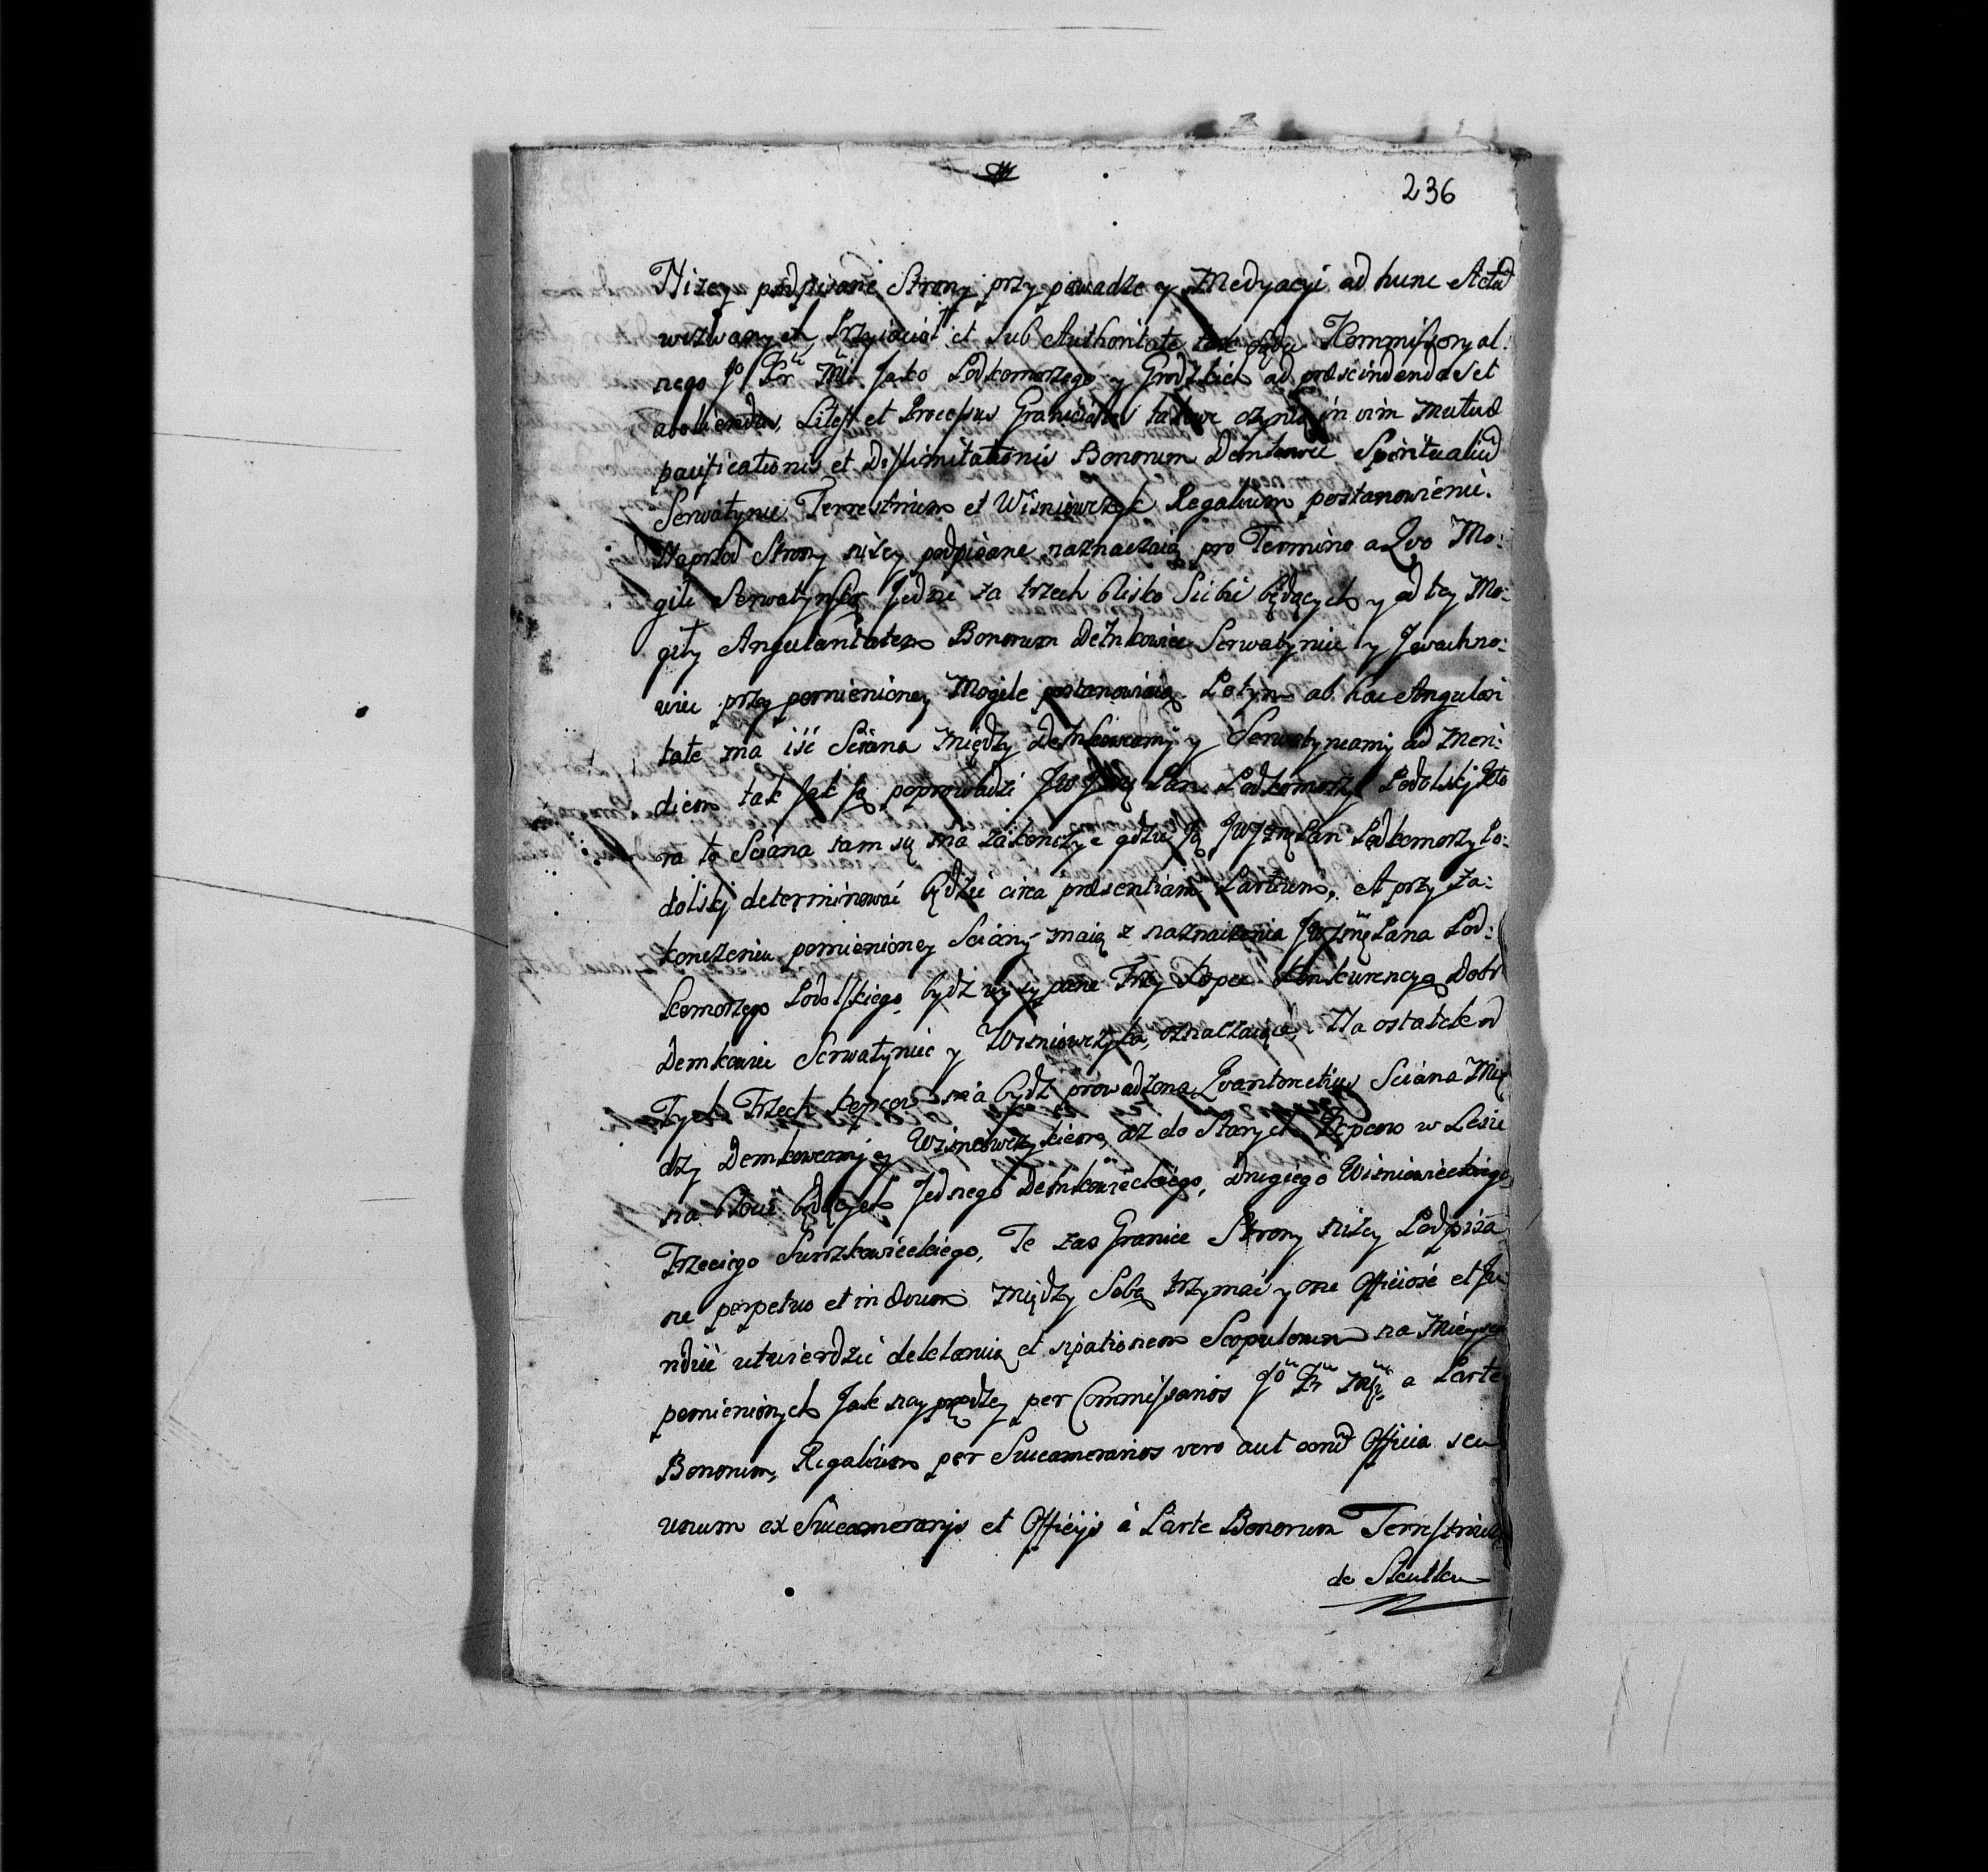 236
Nizey podpisane Strony przy powadze y Medyacyi ad hunc Actũ
wezwanych Przyiacioł et sub Authoritate tak sądu Kommissoryal:
nego Jo Kr Mci Jako Podkomorzego y Grodzkich ad præscindendas et
aboliendas, Lites et Processus Graniciales takowe czynią in vim mutuæ
pacificationis et Dislimitationis Bonorum Demkowiec Spiritualiũ
Serwatyniec Terrestrium et Wisniowczyk Regalium postanowienie.
Naprzod Strony niżey podpisane naznaczaią pro Termino a Quo Mo:
giłę Serwatynską Jednę za trzech blisko Siebie będących y od tey Mo:
giły Angularitatem Bonorum Demkowiec Serwatyniec y Iwachno:
wiec przy pomienioney Mogile postanowiaią. Potym ab hac Angulari
tate ma iść Sciana między Demkowcami y Serwatyncami ad Meri:
diem tak Jak Ją poprowadzi JW Jmę Pan Podkomorzy Podolskj Kto
ra to Sciana tam się ma zakonczyc gdzie Ją JW Jmę Pan Podkomorzy Po:
dolskj determinować będzie circa præsentiam Partium. A przy za:
konczeniu pomienioney Sciany maią z naznaczenia JW Jmę Pana Pod:
komorzego Podolskiego bydź wysypane Trzy Kopce Konkurencyą Dobr
Demkowiec Serwatyniec y Wisniowczyka, oznaczaiące. Na ostatek od
Tych Trzech kopcow ma bydź prowadzona Sciana Mię
dzy Demkowcamj y Wisniowczykiem, aż do Starych Kopcow w Lesie
na będących Jednego Demkowieckiego, drugiego Wisniowieckiego
Trzeciego Te zas Granice Strony niżey Podpisa
ne perpetuo et in ævum między Sobą trzymać y one Officiose et Ju
ridice utwierdzić deklaruią et sipationem Scopulorum na Mieyscach
pomienionych Jak nayprędzey per Commissarios Jo Kr Mci a Parte
Bonorum, Regalium per Succamerarios vero aut eorũ Officia seu
unum ex Succamerarijs et Officijs à Parte Bonorum Terrestrium
do Skutku